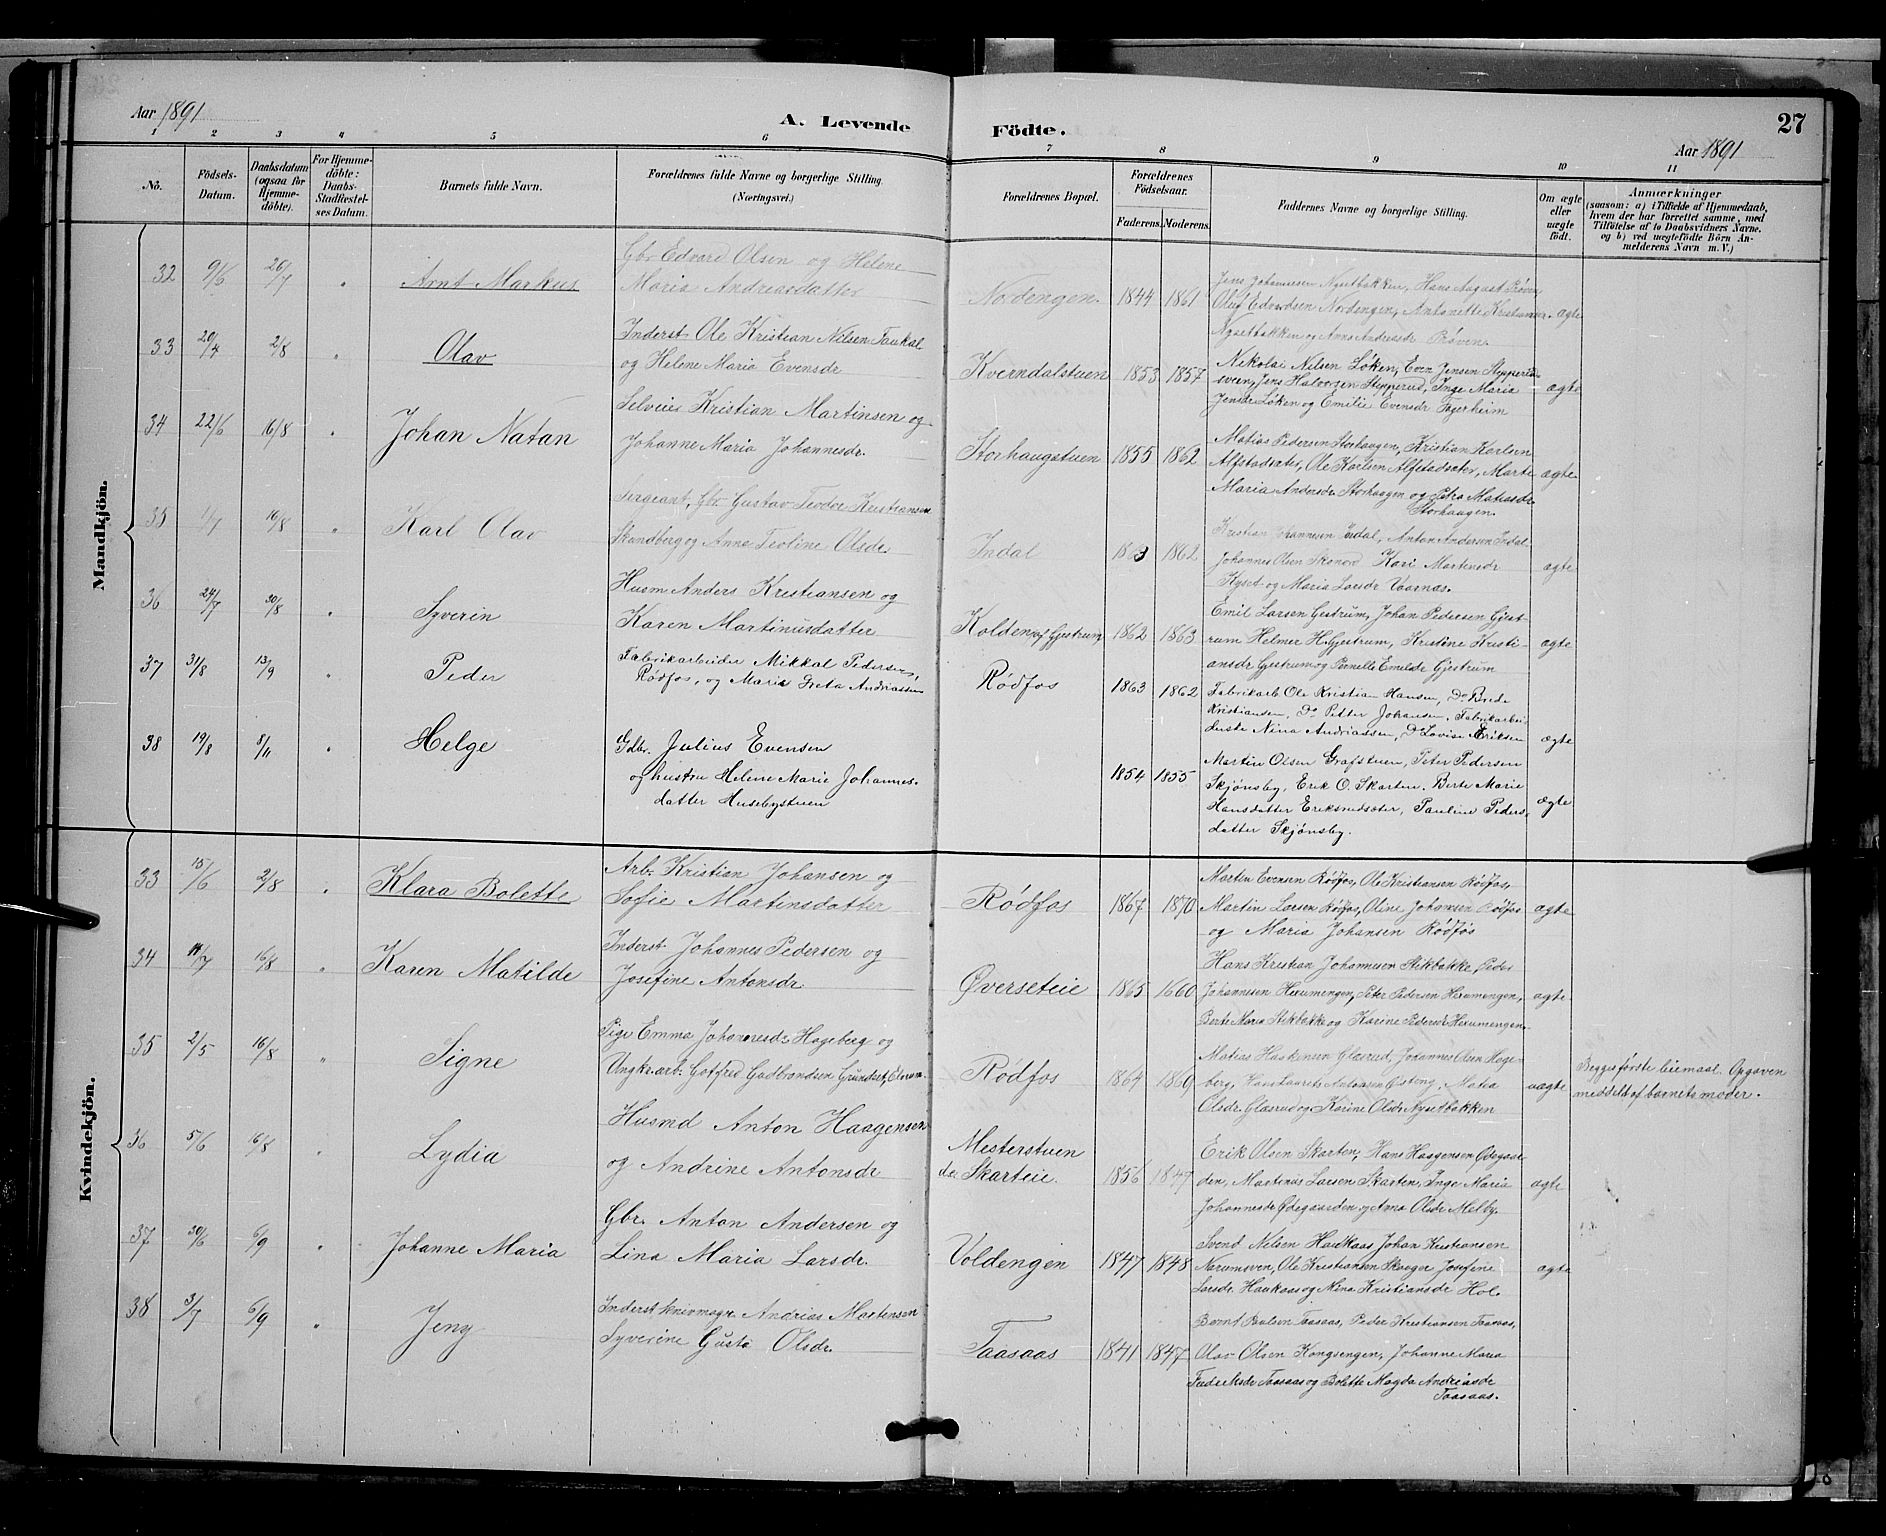 Aar 1891
A. Levende Födte.
27
Aar 1891
1 2 3 4 5 6 7 8 9 10 11
No.
Födsels-Datum.
Daabsdatum (ogsaa for Hjemme-döbte).
For Hjemme-döbte: Daabs-Stadfæstel-ses Datum.
Barnets fulde Navn.
Forældrenes fulde Navne og borgerlige Stilling.
(Næringsvei.)
Forældrenes Bopæl.
Forældrenes Födselsaar.
Faderens. Moderens.
Faddernes Navne og borgerlige Stilling.
Om ægte eller uægte født.
Anmærkninger
(saasom: a) i Tilfælde af Hjemmedaab,
hvem der har forrettet samme, med
Tilföielse af to Daabsvidners Navne.
og b) ved uægtefödte Börn An-
melderens Navn m. V.)
Mandkjön.
32 9/6 26/7 " Arnt Markus
Gbr Edvard Olsen og Helene
Maria Andreasdatter
Nordengen. 1844 1861
Jens Johannesen Nysetbakken, Hans August Prøven,
Oluf Edvardsen Nordengen, Antonette Kristiansdr.
Nysetbakken og Anne Andreasdr Prøven.
ægte
33 20/4 2/8 " Olav
Inderst Ole Kristian Nilsen Taukal
og Helene Maria Evensdr
Kverndalstuen 1853 1857
Nikolai Nilsen Løken, Even Jensen Stepperud-
sveen, Jens Halvorsen Stepperud, Inge Marie
Jensdr Løken og Emilie Evensdr Fagerheim
ægte
34 22/6 16/8 " Johan Natan
Selveier Kristian Martinsen og
Johanne Maria Johannesdr.
Storhaugstuen 1855 1862
Matias Pedersen Storhaugen, Kristian Karlsen
Alfstadsæter, Ole Karlsen Alfstadsæter, Marte
Maria Andersdr Storhaugen og Petra Matiasdr
Storhaugen.
ægte
35 1/7 16/8 " Karl Olav
Sergeant, Gbr Gustav Teodor Kristiansen
Skundberg og Anne Teoline Olsdr
Indal 1863 1862
Kristian Johannesen Indal, Anton Andersen Indal
Johannes Olsen Skonord Kari Martinsdr
Kyset og Maria Larsdr Vaarnæs.
ægte
36 24/7 30/8 " Syverin
Husm Anders Kristiansen og
Karen Martinusdatter
Kolden af Gjestrum 1862 1863
Emil Larsen Gjestrum, Johan Pedersen Gjest-
rum Helmer H. Gjestrum, Kristine Kristi-
ansdr Gjestrum og Pernelle Emilsdr Gjestrum
ægte
37 31/8 13/9 " Peder
Fabrikarbeider Mikkal Pedersen,
Rødfos, og Marie Greta Andriassen
Rødfos 1863 1862
Fabrikarb Ole Kristian Hansen, Do Brede
Kristiansen, Do Petter Johansen, Fabrikarbei-
derske Nina Andriassen, Do Lovise Eriksen
ægte
38 19/8 8/11 " Helge
Gdbr. Julius Evensen
og hustru Helene Marie Johannes-
datter Husebystuen
1854 1855
Martin Olsen Grafstuen, Peter Pedersen
Skjønsby, Erik O. Skarten. Berte Marie
Hansdatter Eriksrudsæter, Pauline Peders-
datter Skjønsby.
ægte
Kvindekjön.
33 15/6 2/8 " Klara Bolette
Arb. Kristian Johansen og
Sofie Martinsdatter
Rødfos 1867 1870
Martin Evensen Rødfos, Ole Kristiansen Rødfos,
Martin Larsen Rødfos, Oline Johansen Rødfos
og Maria Johansen Rødfos
ægte
34 11/7 16/8 " Karen Matilde
Inderst Johannes Pedersen og
Josefine Antonsdr
Øverseteie 1865 1660
Hans Kristian Johannesen Stikbakke Peder
Johannesen Hexumengen, Peter Pedersen Hexumengen,
Berte Maria Stikbakke og Karine Pedersdr Hexumengen
ægte
35 2/5 16/8 " Signe
Pige Emma Johannesdr Hageberg og
Ungk. arb. Gotfred Gudbrandsen Grundset, Elverum.
Rødfos 1864 1869
Matias Haakensen Glæsrud, Johannes Olsen Hage-
berg, Hans Laurets Antonsen Gisteng, Matea
Olsdr Glæsrud og Karine Olsdr Nysetbakken
uægte
Begges første leiermaal. Opgaven
meddelt af barnets moder.
36 5/6 16/8 Lydia
Husmd Anton Haagensen
og Andrine Antonsdr
Mesterstuen
Skarteie. 1856 1847
Erik Olsen Skarten, Hans Haagensen Ødegaar-
den, Martinus Larsen Skarten, Inge Maria
Johannesdr Ødegaarden og Anna Olsdr Melby.
ægte
37 30/6 6/9 " Johanne Maria
Gbr. Anton Andersen og
Lina Maria Larsdr.
Voldengen 1847 1848
Svend Nilsen Haukaas Johan Kristiansen
Narumsveen, Ole Kristiansen Skaager Josefine
Larsdr Haukaas og Nina Kristiansdr Hol.
ægte
38 3/7 6/9 " Jeny
Inderst knivmagr. Andrias Martensen
Syverine Gusta Olsdr.
Taasaas 1841 1847
Bernt Paulsen Taasaas, Peder Kristiansen Taasaas,
Olav Olsen Kongsengen, Johanne Maria
Taasaas og Bolette Magda Andriasdr
Taasaas.